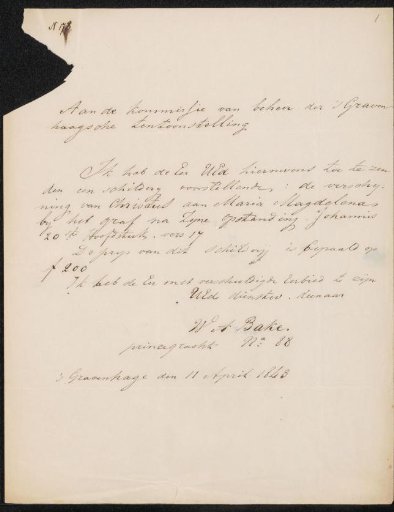 N 178
1
Aan de kommissie van beheer der 's Graven
haagsche tentoonstelling
Ik heb de Eer UEd hiernevens toe te zen
den een schildery voorstellende: de verschy
ning van Christus aan Maria Magdelena
by het graf na zyne opstanding Johannis
20ste hoofdstuk vers 17
De prys van dit schildery is bepaald op
f 200
Ik heb de Eer met verschuldigde Eerbied te zijn
UEd dienstw. dienaar
W A Bake.
prinsegracht No 88
's Gravenhage den 11 April 1843